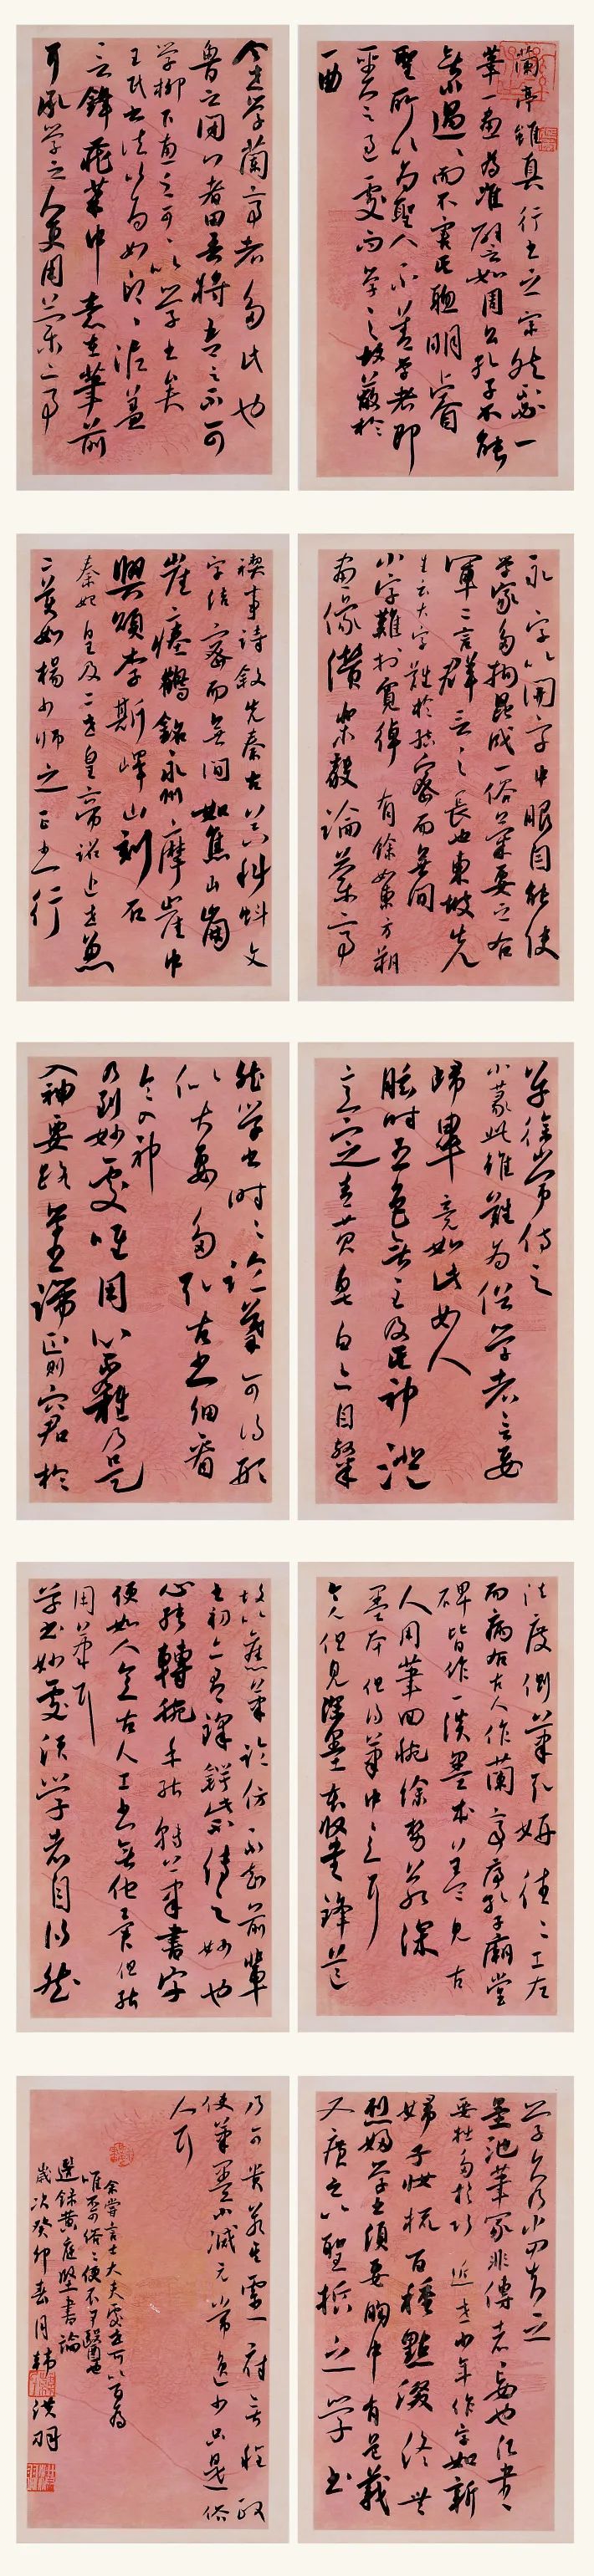 蘭亭雖真行書之宗然不必一
筆一畫為準譬如周公孔子不能
無小過過而不害其聰明睿
聖所以為聖人不善學者即
聖人之過處而學之故蔽於
一曲
今世學蘭亭者多此也
魯之閉門者曰吾將以吾之不可
學柳下惠之可可以學書矣
王氏書法以為如印印泥蓋
言鋒藏筆中意在筆前
耳承學之人更用蘭亭
永字以開字中眼目能使
學家多拘忌成一俗筆要之右
軍二言群言之長也東坡先
生云大字難於結密而無間
小字難於寬綽有餘如東方朔
畫像讚樂毅論蘭亭
禊事詩敘先秦古器科蚪文
字結密而無間如焦山崩
崖瘞鶴銘永州摩崖中
興頌李斯嶧山刻石
秦始皇及二世皇帝詔近世兼
二美如楊少師之正書行
草徐常侍之
小篆此雖難為俗學者言要
歸畢竟如此如人
眩時五色無主及其神澄
意定青黃皂白亦自粲
然學書時時臨摹可得形
似大要多取古書細看
令入神
乃到妙處唯用心不雜乃是
入神要路端正則窘於
法度側筆取妍往往工左
而病右古人作蘭亭序孔子廟堂
碑皆作一淡墨本蓋見古
人用筆回腕餘勢若深
墨本但得筆中意耳
今人但見深墨本收書鋒芒
故以舊筆臨仿不知前輩
書初亦有鋒鍔此不傳之妙也
心能轉腕手能轉筆書字
便如人意古人工書無他異但能
用筆耳
學書妙處須學者自得然
學久乃當知之
墨池筆冢非傳者妄也凡書
要拙多於巧近世少年作字如新
婦子妝梳百種點綴終無
烈婦學書須要胸中有道義
又廣之以聖哲之學書
乃可貴若其靈府無程政
使筆墨不減元常逸少只是俗
人耳
余嘗言士大夫處世可以百為
唯不可俗俗便不可醫也
選錄黃庭堅書論
歲次癸卯春月韓洪羽